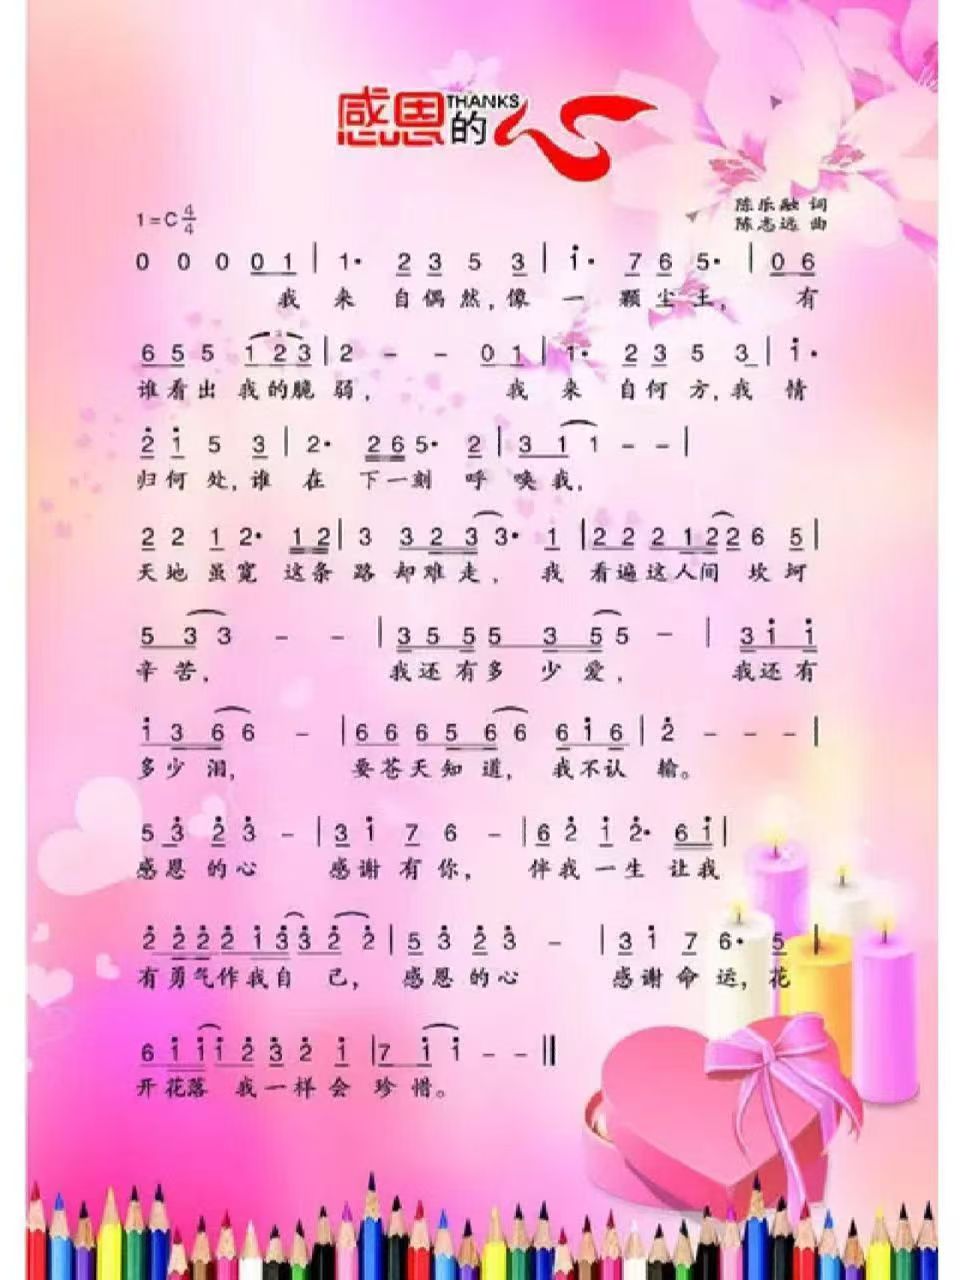 感恩的心
THANKS
陈乐融 词
1=C 4/4
陈志远 曲
0 0 0 0 1 | 1· 2 3 5 3 | i· 7 6 5· | 0 6
我 来 自偶然,像 一 颗尘土, 有
6 5 5 1 2 3 | 2 - - 0 1 | 1· 2 3 5 3 | i·
谁看出 我的脆 弱, 我 来 自何 方,我 情
2̇ i 5 3 | 2· 2 6 5· 2 | 3 1 1 - - |
归何 处,谁 在 下一刻 呼 唤我,
2 2 1 2· 1 2 | 3 3 2 3 3· 1 | 2 2 2 1 2 2 6 5 |
天地 虽宽 这条 路 却难走, 我 看遍这人间 坎坷
5 3 3 - - | 3 5 5 5 3 5 5 - | 3 i i
辛苦, 我还有多 少爱, 我还有
i 3 6 6 - | 6 6 6 5 6 6 6 i 6 | 2̇ - - - |
多少 泪, 要苍天知道, 我不认 输。
5 3̇ 2̇ 3̇ - | 3̇ i 7 6 - | 6 2̇ i 2̇· 6 i |
感恩 的心 感谢有你, 伴我一生 让我
2̇ 2̇ 2̇ 2̇ i 3̇ 3̇ 2̇ 2̇ | 5 3̇ 2̇ 3̇ - | 3̇ i 7 6· 5 |
有勇气作我自 己, 感恩的心 感谢命 运,花
6 i i i 2̇ 3̇ 2̇ i | 7 i i - - ‖
开花落 我一样会 珍惜。